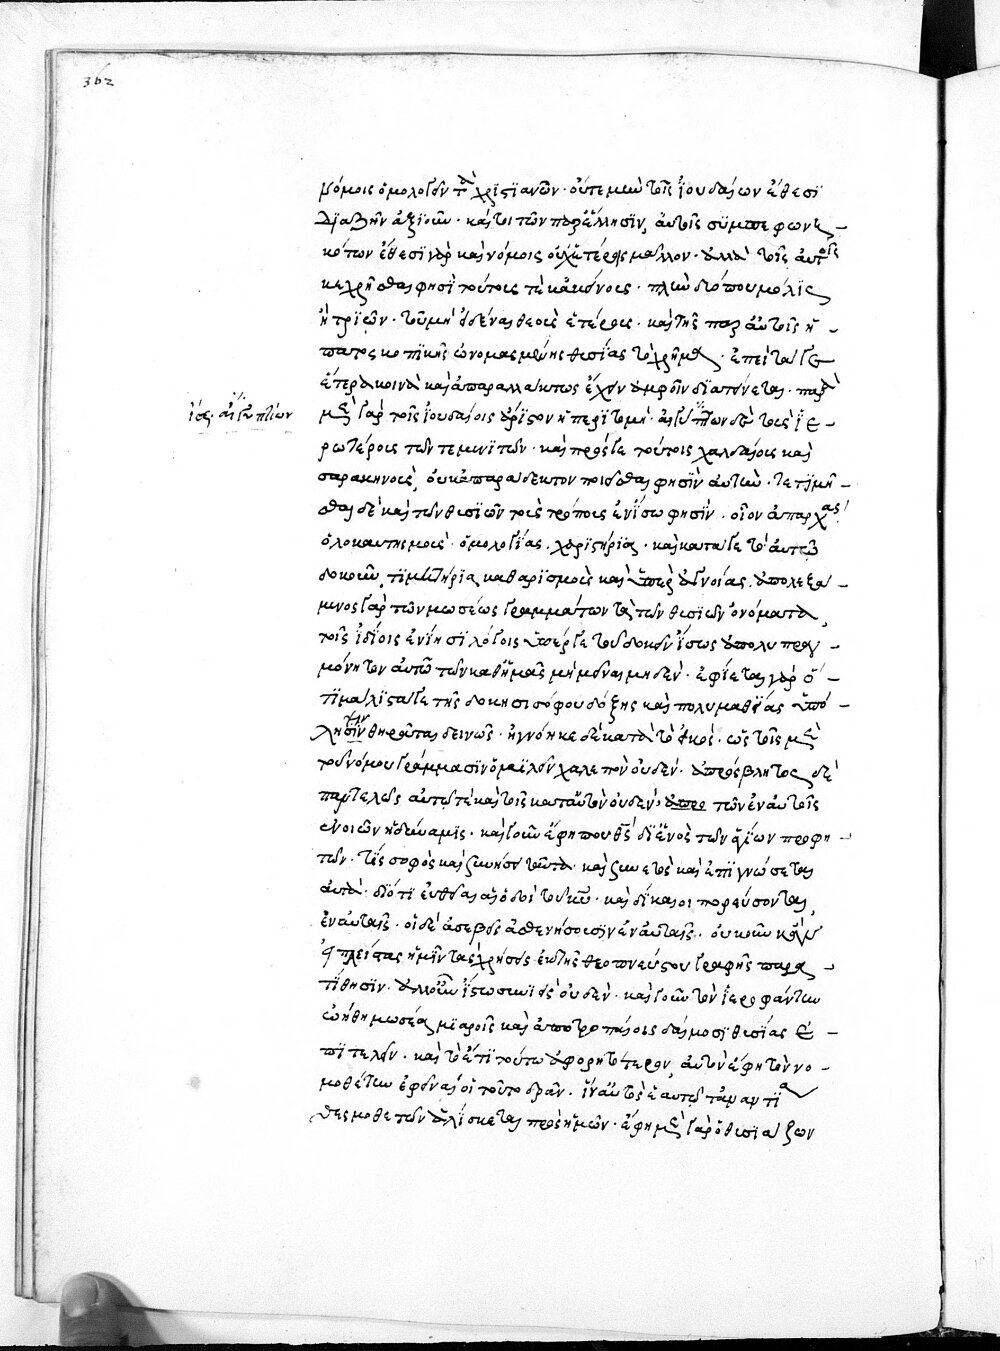 362
νόμοις ὁμολογεῖν τὰ χριστιανῶν · οὔτε μὴν τοῖς ἰουδαίων ἔθεσι
διαζῆν ἀξιοῦν · καίτοι τῶν παρ' ἕλλησιν, αὐτοῖς συμπεφωνη-
κότων ἔθεσι γὰρ καὶ νόμοις οὐχ ἑτέροις μᾶλλον · ἀλλὰ τοῖς αὐτοῖς
κεχρῆσθαι φησὶ τούτους τὲ κἀκείνους · πλὴν δυό που μόλις
ἢ τριῶν · τοῦ μὴ εἰδέναι θεοὺς ἑτέρους · καὶ τῆς παρ' αὐτοῖς ἡ-
πατοσκοπικῆς ὠνομασμένης θυσίας τὸ χρῆμα · ἐπεὶ τά γε
ἕτερα κοινὰ καὶ ἀπαραλλάκτως ἔχειν ἀμφοῖν διατείνεται · παρὰ
μὲν γὰρ τοῖς ἰουδαίοις ἄριστον ἡ περιτομὴ · αἰγυπτίων δὲ τοὺς ἱε-
ἴσ. αἰγυπτίων
ρωτέροις τῶν τεμενιτῶν · καὶ πρός γε τούτοις χαλδαίοις καὶ
σαρακηνοῖς, οὐκ ἀπαράδεκτον ποιεῖσθαι φησὶν αὐτὴν · τετιμῆ-
σθαι δὲ καὶ τῶν θυσιῶν τοὺς τρόπους ἐν ἴσῳ φησὶν · οἷον ἀπαρχάς
ὁλοκαυτησμοὺς · ὁμολογίας, χαριστήρια · καὶ κατά γε τὸ αὐτῷ
δοκοῦν, τιμητήρια, καθαρισμοὺς καὶ ὑπὲρ ἀγνοίας. ἀπολεξά-
μενος γὰρ τῶν μωσέως γραμμάτων τὰ τῶν θυσιῶν ὀνόματα,
τοῖς ἰδίοις ἐνίησι λόγοις ὑπέρ γε τοῦ δοκεῖν ἴσως ἀπολυπραγ-
μόνητον αὐτῷ τῶν καθ' ἡμᾶς μὴ μεῖναι μηδέν · ἐφίεται γὰρ ὅ-
τι μάλιστά γε τῆς δοκησισόφου δόξης καὶ πολυμαθίας ὑπό-
ληψιν θηρᾶται δεινῶς · ἠγνόηκε δὲ κατὰ τὸ εἰκὸς · ὡς τοῖς μὲν
τοῦ νόμου γράμμασιν ὁμιλεῖν χαλεπὸν οὐδέν · ἀπρόσβλητος δὲ
παντελῶς αὐτῷ τὲ καὶ τοῖς κατ' αὐτὸν οὐδέν, ἄπερ τῶν ἐν αὐτοῖς
ἐνοιῶν ἡ δύναμις · καὶ γοῦν ἔφη που θεὸς δι' ἑνὸς τῶν ἁγίων προφη-
τῶν · τίς σοφὸς καὶ συνήσει ταῦτα · καὶ συνετὸς καὶ ἐπιγνώσεται
αὐτά · διότι εὐθεῖαι αἱ ὁδοὶ τοῦ κυρίου · καὶ δίκαιοι πορεύσονται,
ἐν αὐταῖς · οἱ δὲ ἀσεβεῖς ἀσθενήσουσιν ἐν αὐταῖς · οὐκοῦν κἂν
εἰ πλείστας ἡμῖν τὰς χρήσεις ἐκ τῆς θεοπνεύστου γραφῆς παρα-
τίθησιν · ἀλλ' οὖν ἴστω συνιεὶς οὐδέν · καὶ γοῦν τὸν ἱεροφάντην
ᾠήθη μωσέα μιαροῖς καὶ ἀποτροπαίοις δαίμοσι θυσίας ἐ-
πιτελεῖν · καὶ τὸ ἔτι τούτων ἀφορητότερον, αὐτὸν ἔφη τὸν νο-
μοθέτην ἐφεῖναί οἱ τοῦτο δρᾶν · ἵν' αὐτὸς ἑαυτῷ τἀναντία
θεσμοθετῶν ἁλίσκεται πρὸς ἡμῶν · ἔφη μὲν γὰρ ὁ θυσιάζων